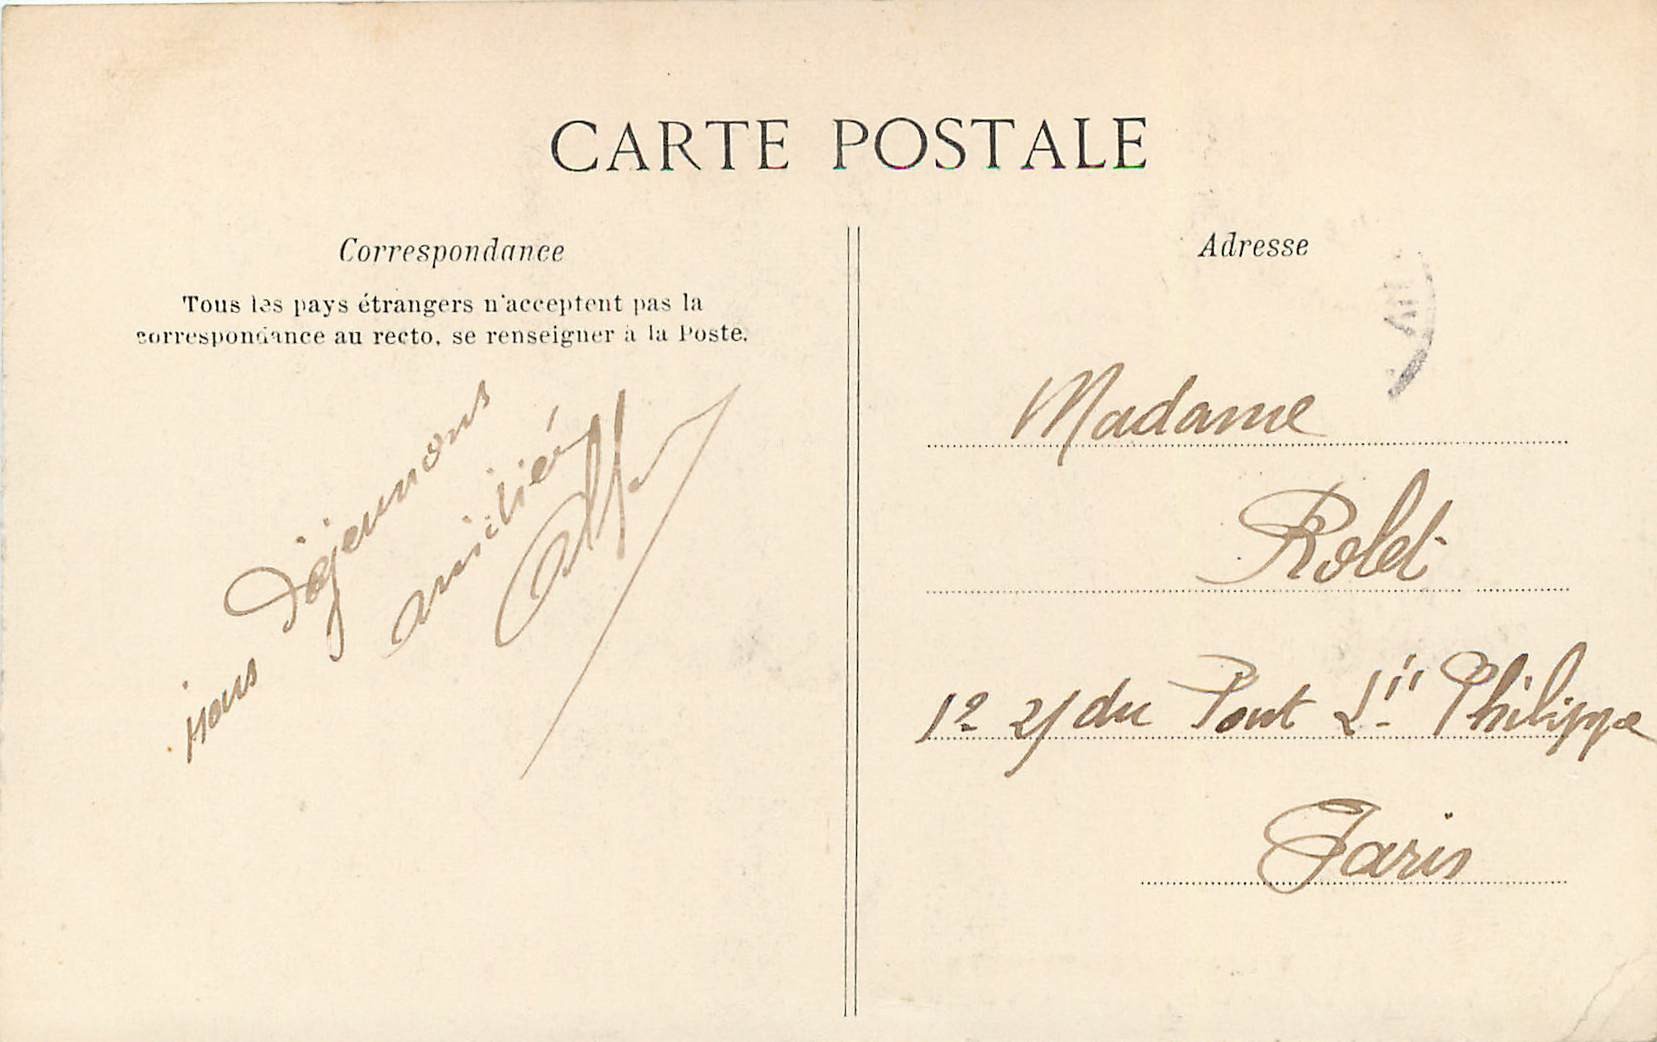 CARTE POSTALE
Correspondance
Tous les pays étrangers n'acceptent pas la
correspondance au recto, se renseigner à la Poste.
nous Déjeunons
amitiés
Adresse
Madame
Rolet
12 du Pont Lis Philippe
Paris